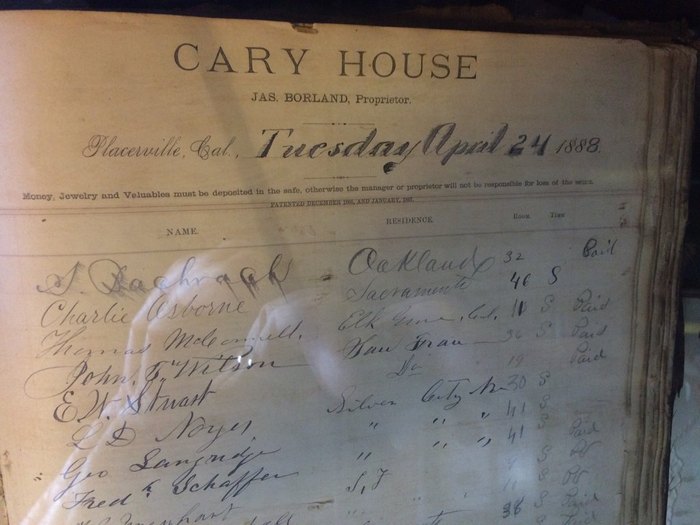 CARY HOUSE
JAS. BORLAND, Proprietor.
Placerville, Cal., Tuesday April 24 1888.
Money, Jewelry and Valuables must be deposited in the safe, otherwise the manager or proprietor will not be responsible for loss of the same.
PATENTED DECEMBER 1865, AND JANUARY, 1867.
NAME. RESIDENCE. Room. Time
S. Bachrach Oakland 32 Paid
Charlie Osborne Sacramento 46 S
Thomas McConnell, Elk Grove, Cal. 11 S Paid
John F. Wilson San Fran 36 S Paid
E. W. Stuart Do 19 Paid
L D Noyes Silver City N 30 S
Geo Langridge " " " 41 S
Fredk Schaffer " " " 41 Paid
S, F
38 S Paid